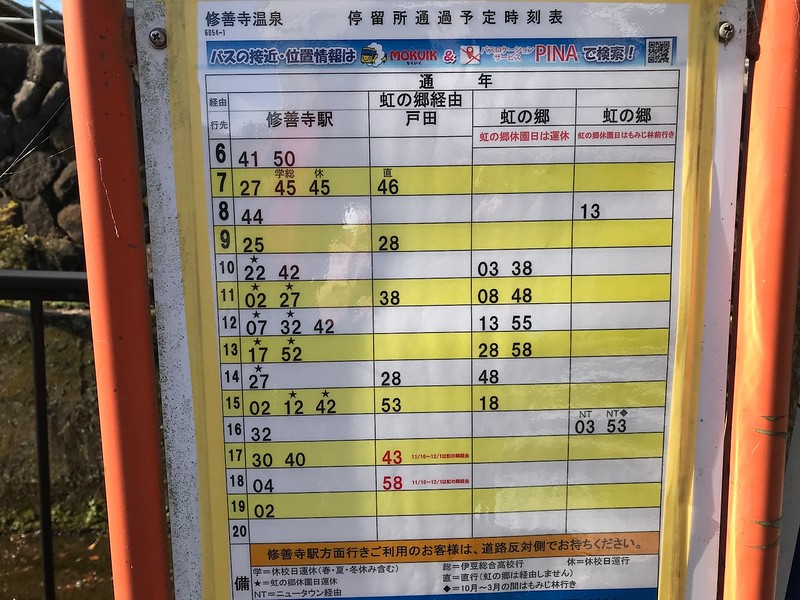 修善寺温泉 停留所通過予定時刻表
6054-1
バスの接近・位置情報は MOKUIK もくいく & バスロケーションサービス PINA で検索！
通 年
経由 行先 修善寺駅 虹の郷経由 戸田 虹の郷 虹の郷休園日は運休 虹の郷 虹の郷休園日はもみじ林前行き
6 41 50
7 27 学総45 休45 直46
8 44 13
9 25 28
10 ★22 42 03 38
11 ★02 ★27 38 08 48
12 ★07 ★32 42 13 55
13 ★17 ★52 28 58
14 ★27 28 48
15 02 ★12 ★42 53 18
16 32 NT03 NT◆53
17 30 40 43
18 04 58
19 02
20
修善寺駅方面行きご利用のお客様は、道路反対側でお待ちください。
備
学＝休校日運休（春・夏・冬休み含む） 総＝伊豆総合高校行 休＝休校日運行
★＝虹の郷休園日運休 直＝直行（虹の郷は経由しません）
NT＝ニュータウン経由 ◆＝10月～3月の間はもみじ林行き